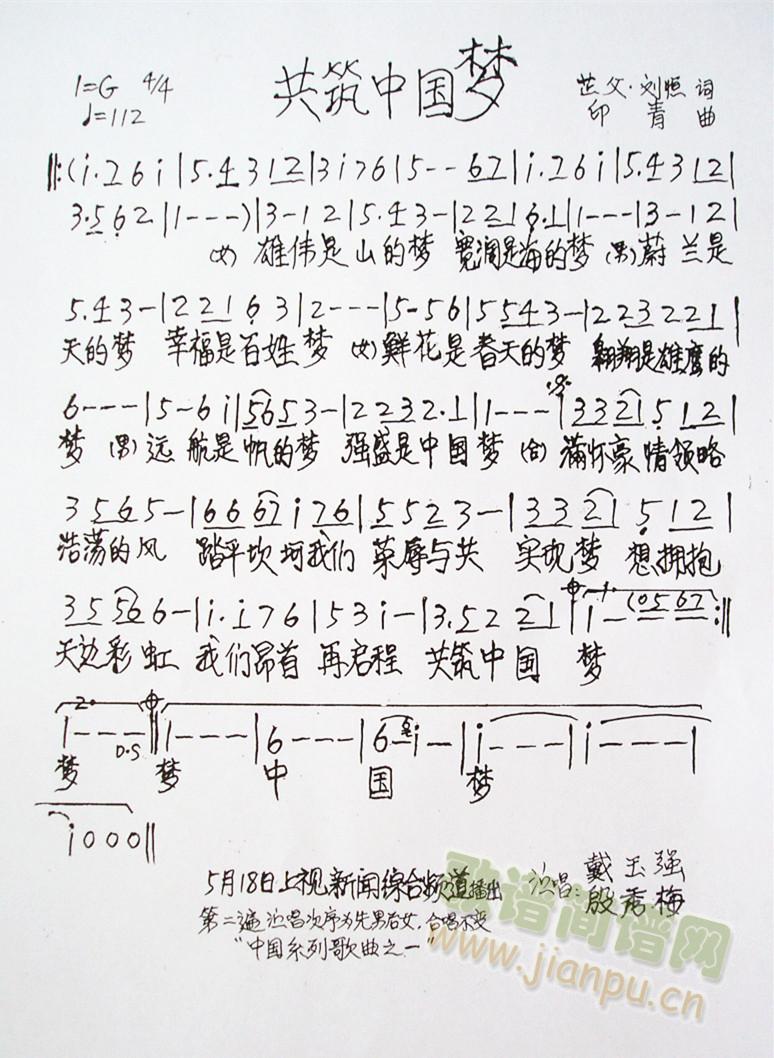 共筑中国梦
1=G 4/4
♩=112
芷父·刘恒 词
印青 曲
‖:(i.761|5.4312|3i76|5--67|i.761|5.4312|
3.562|1---)|3-12|5.43-|2216.1|1---|3-12|
(女)雄伟是山的梦 宽阔是海的梦 (男)蔚兰是
5.43-|22163|2---|5-56|5543-|223221|
天的梦 幸福是百姓梦 (女)鲜花是春天的梦 翱翔是雄鹰的
6---|5-6i|5653-|2232.1|1---|3321512|
梦 (男)远航是帆的梦 强盛是中国梦 (合)满怀豪情领略
3565-|6667i76|5523-|3321512|
浩荡的风 踏平坎坷我们 荣辱与共 实现梦想拥抱
35566-|i.i76|53i-|3.5221|1-(0567:‖
天边彩虹 我们昂首 再启程 共筑中国 梦
2.
1---‖1---|6---|6i--|i---|i---|
D.S
梦 梦 中 国 梦
i000‖
5月18日上视新闻综合频道播出
演唱:戴玉强
殷秀梅
第二遍演唱次序为先男后女,合唱不变
"中国系列歌曲之一"
歌谱简谱网
www.jianpu.cn